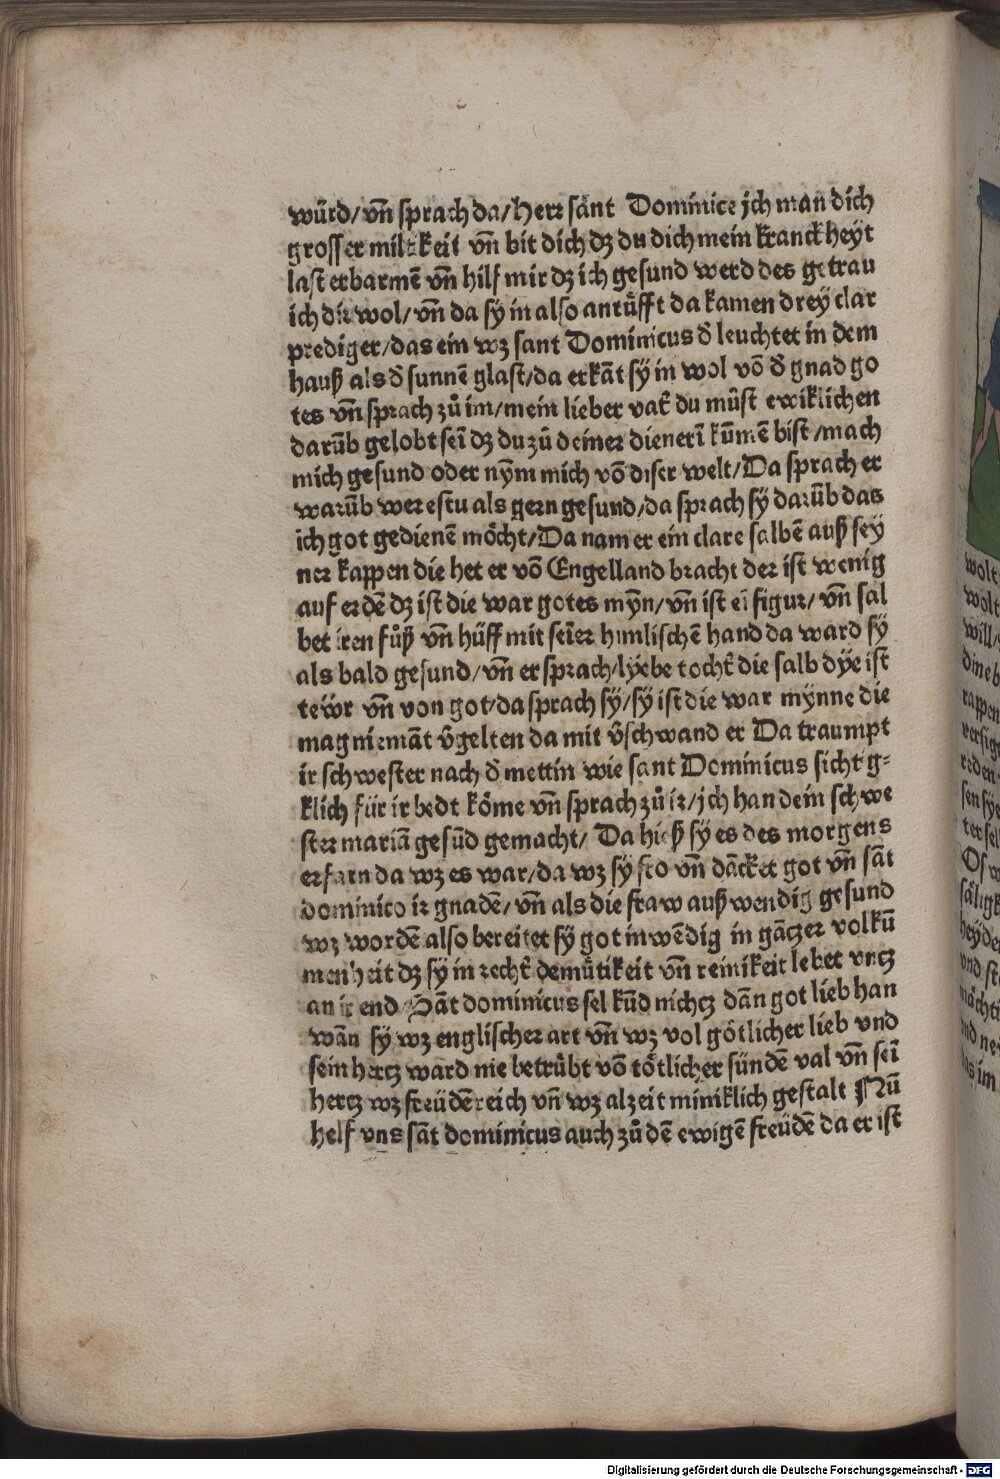 würd/vn̄ sprach da/Herr sant Dominice jch man dich
grosser miltkeit vn̄ bit dich dz du dich mein kranckheyt
last erbarmē vn̄ hilf mir dz ich gesund werd des getrau
ich dir wol/vn̄ da sy in also anrůfft da kamen drey clar
prediger/das ein wz sant Dominicus ď leuchtet in dem
hauß als ď sunnē glast/da erkāt sy in wol vō ď gnad go
tes vn̄ sprach zů im/mein lieber vat̄ du můst ewiklichen
darūb gelobt sei̅ dz du zů deiner dieneri̅ kūmē bist/mach
mich gesund oder nym̄ mich vō diser welt/Da sprach er
warūb werestu als gern gesund/da sprach sy darūb das
ich got gedienē möcht/Da nam er ein clare salbē auß sey
ner kappen die het er vō Engelland bracht der ist wenig
auf erdē dz ist die war gotes myn̄/vn̄ ist ei̅ figur/vn̄ sal
bet iren fůß vn̄ hůff mit sei̅er himlischē hand da ward sy
als bald gesund/vn̄ er sprach/lyebe tocht̄ die salb dye ist
tewr vn̄ von got/da sprach sy/sy ist die war mynne die
mag niemāt v̄gelten da mit v̄schwand er Da traumpt
ir schwester nach ď mettin wie sant Dominicus sichtig=
klich für ir bedt köme vn̄ sprach zů ir/jch han dein schwe
ster mariā gesūd gemacht/ Da hieß sy es des morgens
erfarn da wz es war/da wz sy fro vn̄ dācket got vn̄ sāt
dominico ir gnadē/vn̄ als die fraw außwendig gesund
wz wordē also bereitet sy got inwēdig in gāczer volkū
menheit dz sy in recht̄ demůtikeit vn̄ reinikeit lebet vncz
an ir end/Sāt dominicus sel kūd nichcz dān got lieb han
wān sy wz englischer art vn̄ wz vol götlicher lieb vnd
sein hercz ward nie betrübt vō tötlicher sündē val vn̄ sei̅
hercz wz freüdēreich vn̄ wz alzeit miniklich gestalt Nū
helf vns sāt dominicus auch zů dē ewigē freüdē da er ist
wolt
wolt
will/
dine b
rappen
sen sye
Digitalisierung gefördert durch die Deutsche Forschungsgemeinschaft - DFG